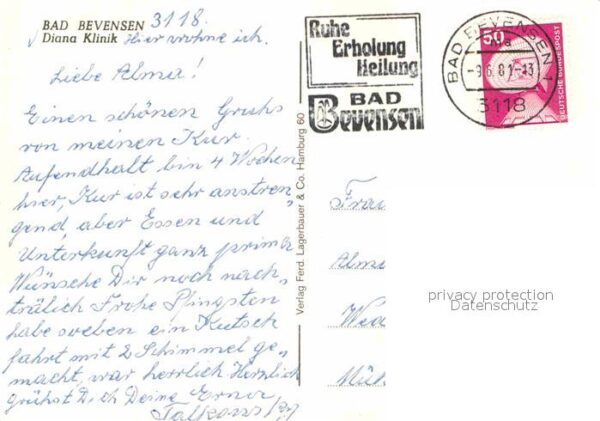 BAD BEVENSEN 3118.
Diana Klinik Hier wohne ich.
Liebe Alma!
Einen schönen Gruhs
von meinen Kur.
Aufendhalt bin 4 Wochen
hier, Kur ist sehr anstren„
gend, aber Essen und
Unterkunft ganz prima
Wünsche Dir noch nach„
träglich Frohe Pfingsten
habe soeben ein Kutsch
fahrt mit 2 Schimmel ge„
macht, war herrlich Herzlich
grühst Dich Deine Erna
Verlag Ferd. Lagerbauer & Co. Hamburg 60
Ruhe
Erholung
Heilung
BAD
Bevensen
BAD BEVENSEN
-9.6.81-13
3118
50
DEUTSCHE BUNDESPOST
Frau
Alma
privacy protection
Datenschutz